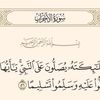 سورة الأحزاب
بسم الله الرحمن الرحيم
لَٰٓئِكَتَهُۥ يُصَلُّونَ عَلَى ٱلنَّبِيِّ يَٰٓأَيُّهَا
عَلَيْهِ وَسَلِّمُوا۟ تَسْلِيمًا